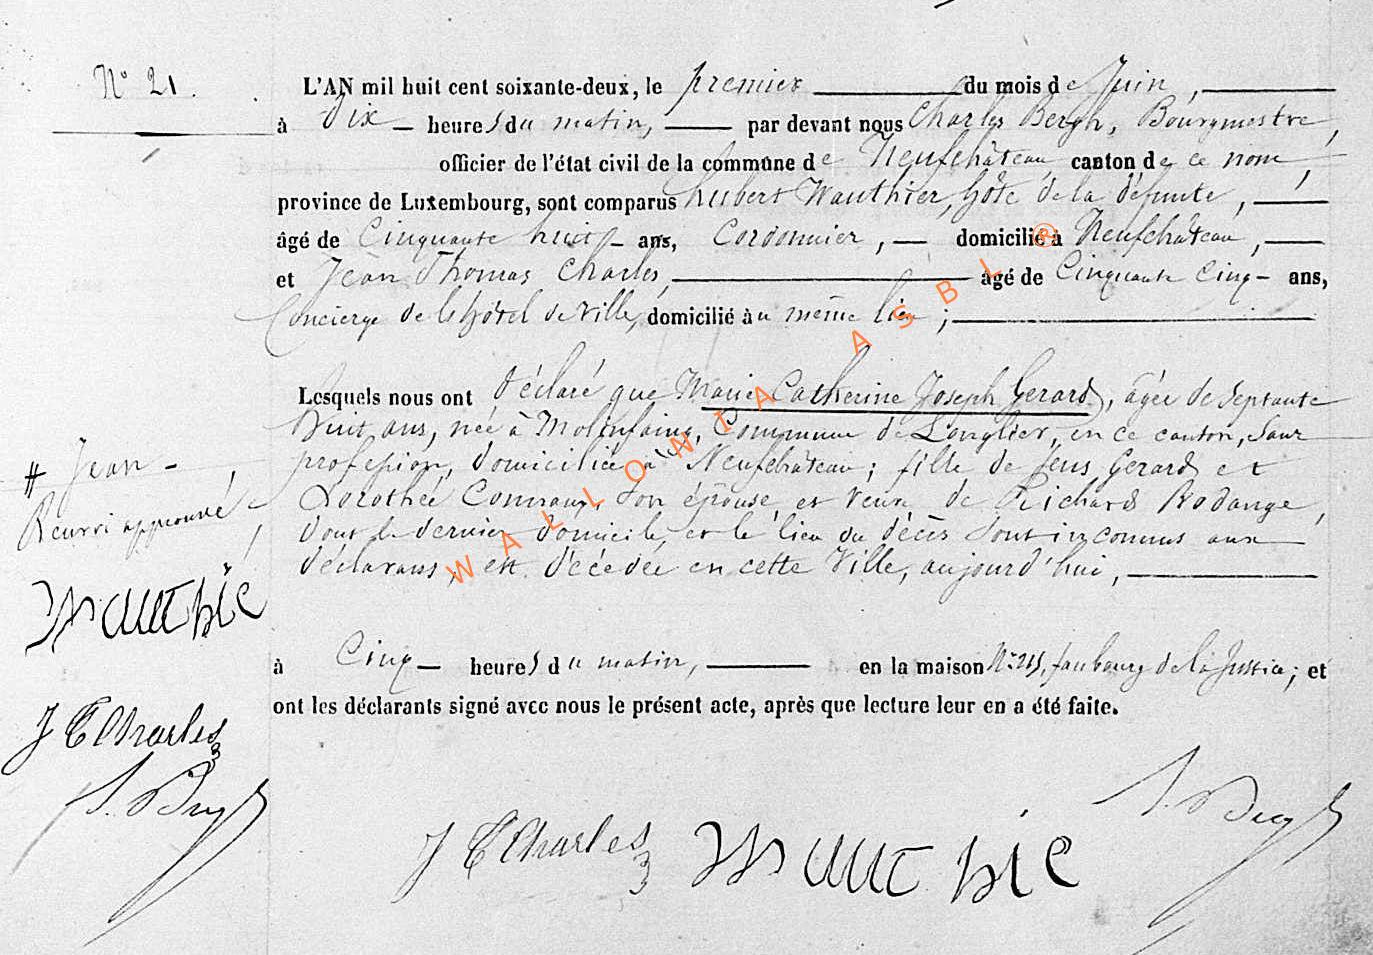 N° 21.
L'AN mil huit cent soixante-deux, le premier du mois de Juin,
à Dix heures du matin, par devant nous Charles Bergh, Bourgmestre,
officier de l'état civil de la commune de Neufchâteau, canton de ce nom,
province de Luxembourg, sont comparus hubert Wauthier, hôte de la défunte,
âgé de Cinquante huit ans, Cordonnier, domicilié à Neufchâteau,
et Jean Thomas Charles, âgé de Cinquante Cinq ans,
Concierge de l'hôtel de Ville, domicilié au même lieu;
Lesquels nous ont déclaré que Marie Catherine Joseph Gerard, âgée de Septante
huit ans, née à Molinfaing, Commune de Longlier, en ce canton, Sans
profession, domiciliée à Neufchâteau; fille de feus Gerard et
Dorothée, Son épouse, et veuve de Richard Rodange,
dont le dernier domicile et le lieu du décès Sont inconnus aux
déclarans, est décédée en cette Ville, aujourd'hui,
à Cinq heures du matin, en la maison N° 215, faubourg de la Justice; et
ont les déclarants signé avec nous le présent acte, après que lecture leur en a été faite.
# Jean
approuvé
Wauthie
J T Charles
J T Charles Wauthie
WALLONIA ASBL ®